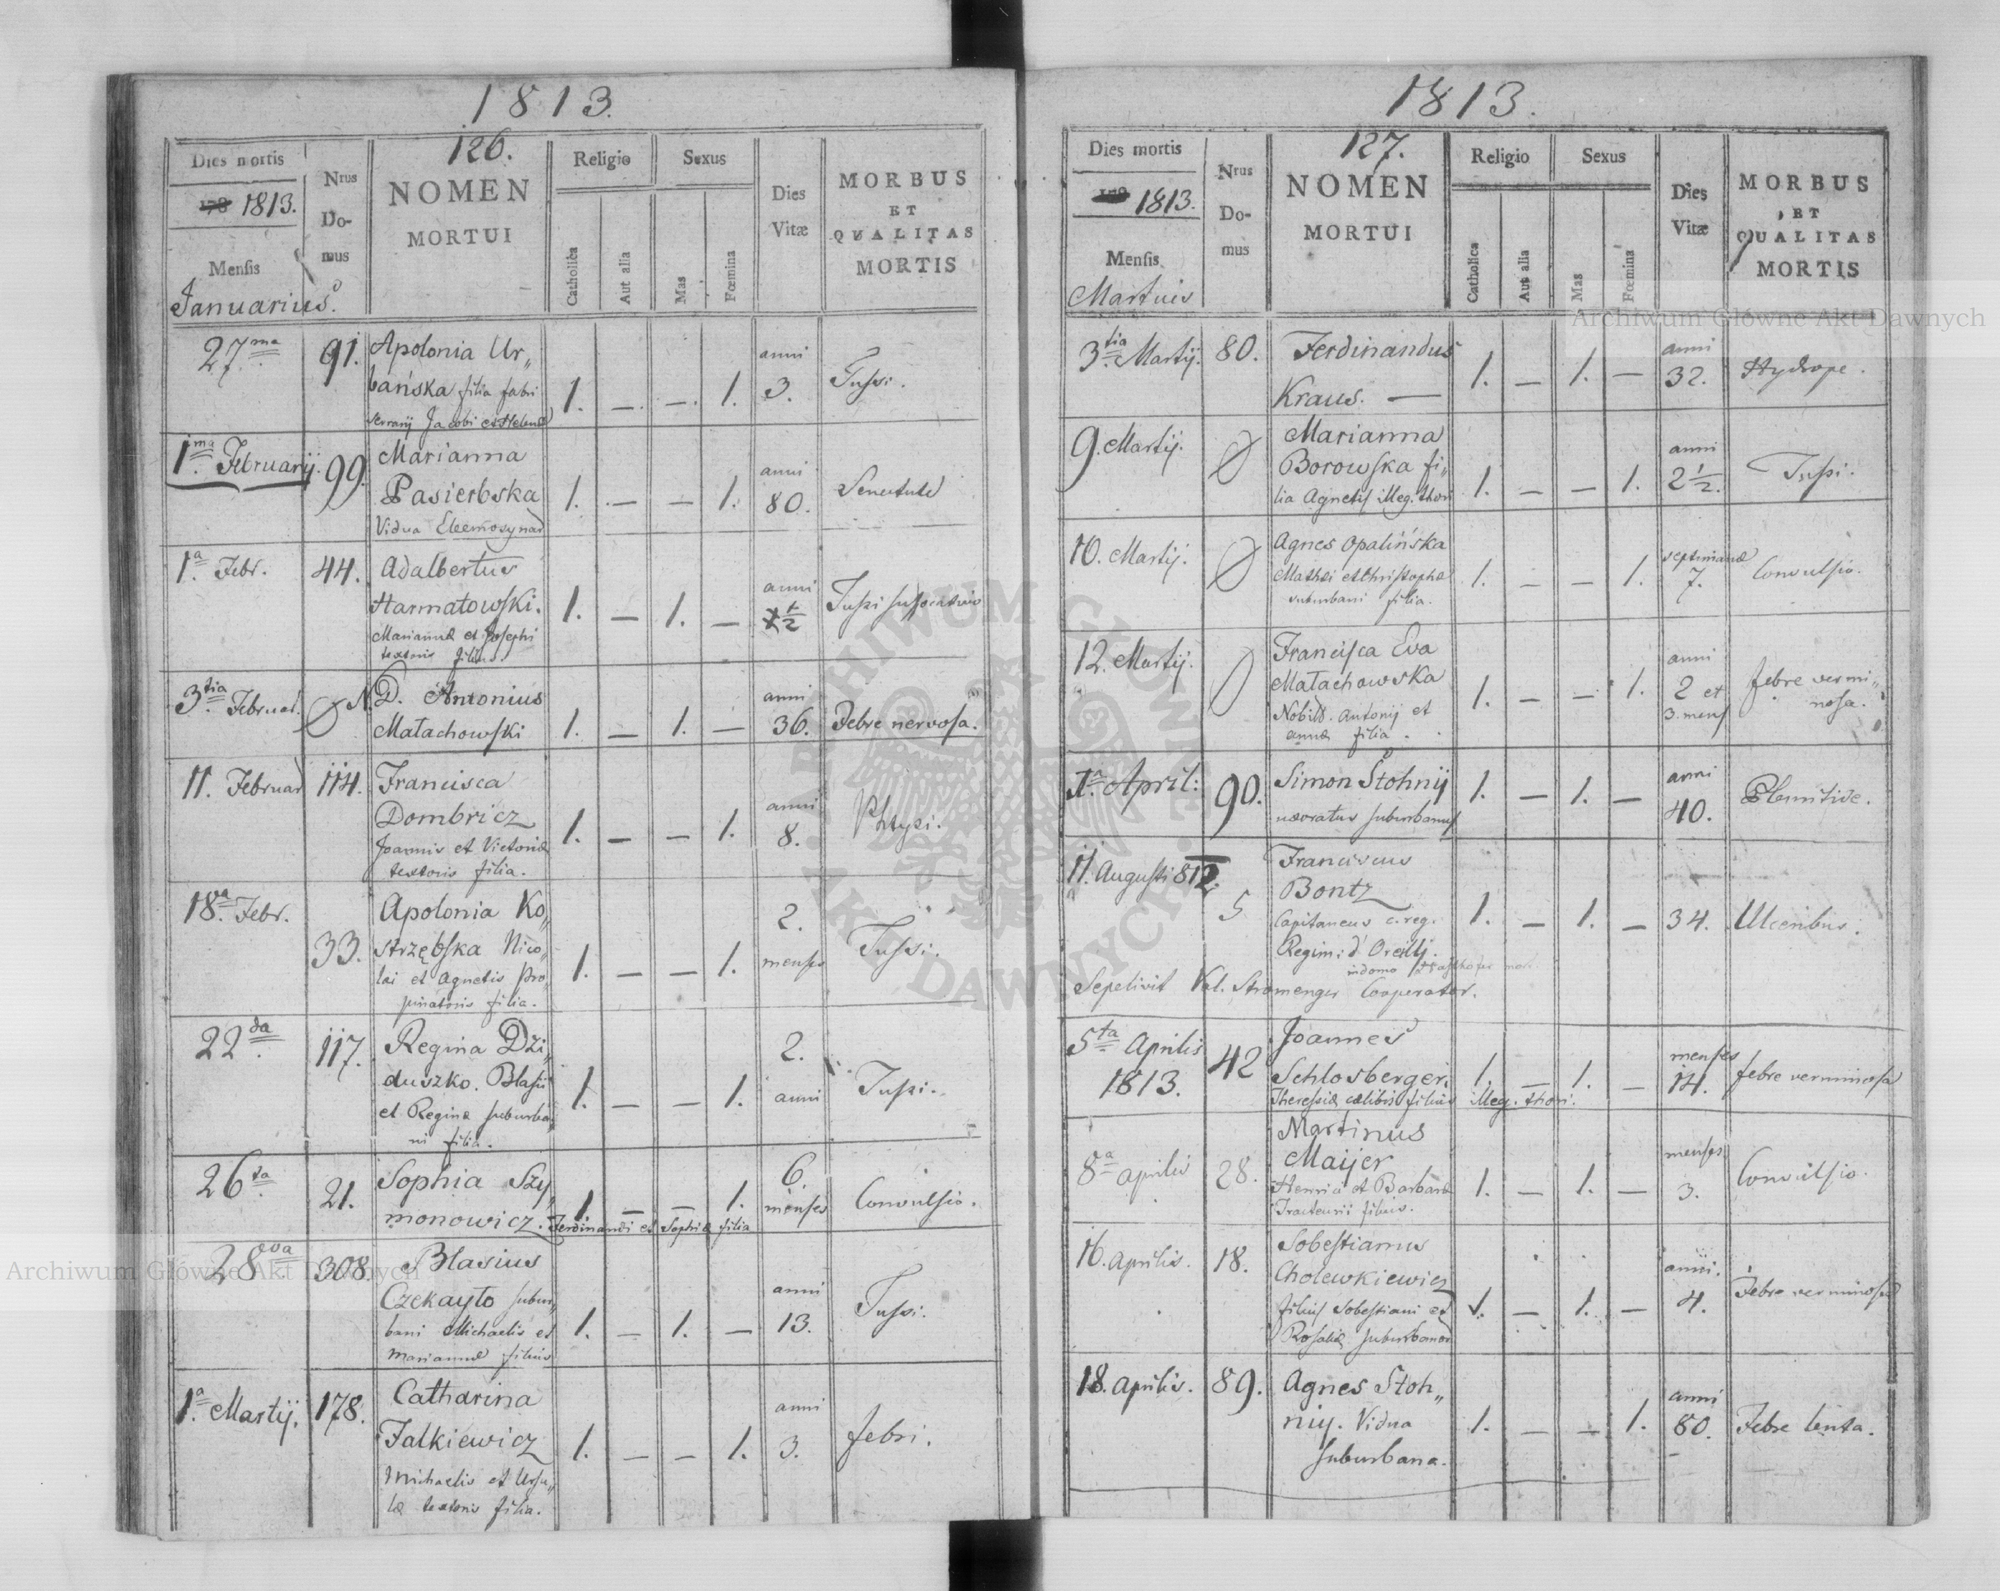 1813.
126.
Dies mortis
1813.
Mensis
Januarius.
Nrus
Do-
mus
NOMEN
MORTUI
Religio
Catholica
Aut alia
Sexus
Mas
Fœmina
Dies
Vitæ
MORBUS
ET
QUALITAS
MORTIS
27ma 91. Apolonia Ur„
bańska filia fabri
ferrarij Jacobi et Helenæ 1. — — 1. anni 3. Tussi.
1ma Februarij. 99. Marianna
Pasierbska
Vidua Eleemosynar 1. — — 1. anni 80. Senectute
1a Febr. 44. Adalbertus
Harmatowski.
Mariannæ et Josephi
textoris filius. 1. — 1. — anni 1/2 Tussi suffocativa
3tia Februar. N. D. Antonius
Małachowski 1. — 1. — anni 36. Febre nervosa.
11. Februar 114. Francisca
Dombricz
Joannis et Victoriæ
textoris filia. 1. — — 1. anni 8. Phtysi.
18va Febr. 33. Apolonia Ko„
strzębska Nico„
lai et Agnetis pro„
pinatoris filia. 1. — — 1. 2. menses Tussi.
22da 117. Regina Dzi„
duszko. Blasii
et Reginæ suburba„
ni filia. 1. — — 1. 2. anni Tussi.
26ta 21. Sophia Szy„
monowicz. Ferdinandi et Sophiæ filia 1. — — 1. 6. menses Convulsio.
28va 308. Blasius
Czekayło subur„
bani Michaelis et
Mariannæ filius 1. — 1. — anni 13. Tussi.
1a Martij. 178. Catharina
Falkiewicz
Michaelis et Ursu„
læ textoris filia. 1. — — 1. anni 3. febri.
1813.
127.
Dies mortis
1813.
Mensis
Martius
Nrus
Do-
mus
NOMEN
MORTUI
Religio
Catholica
Aut alia
Sexus
Mas
Fœmina
Dies
Vitæ
MORBUS
ET
QUALITAS
MORTIS
3tia Martij. 80. Ferdinandus
Kraus. — 1. — 1. — anni 32. Hydrope.
9. Martij. Marianna
Borowska fi„
lia Agnetis illeg. thori 1. — — 1. anni 2 1/2. Tussi.
10. Martij. Agnes Opalińska
Mathei et Christophæ
suburbani filia. 1. — — 1. septimanæ 7. Convulsio.
12. Martij. Francisca Eva
Małachowska
Nobilis. Antonij et
Annæ filia. 1. — — 1. anni 2 et 3. mens febre vermi„
nosa.
1a April: 90. Simon Stohnij
uxoratus suburbanus 1. — 1. — anni 40.
11. Augusti 812. 5 Franciscus
Bontz
Capitaneus c. reg.
Regim: d' Oreilly.
in domo
Sepelivit Val. Stromenger Cooperator. 1. — 1. — 34. Ulceribus.
5ta Aprilis
1813. 42 Joannes
Schlosberger.
Theresiæ cælibis filius illeg. thori. 1. — 1. — menses 14. febre verminosa
8a Aprilis 28. Martinus
Maijer
Henrici et Barbaræ
Tracteurii filius. 1. — 1. — menses 3. Convulsio
16. Aprilis. 18. Sobestianus
Cholewkiewicz
filius Sobestiani et
Rosaliæ suburbanor 1. — 1. — anni. 4. Febre verminosa
18. Aprilis. 89. Agnes Stoh„
nij. Vidua
suburbana. 1. — — 1. anni 80. Febre lenta.
Archiwum Główne Akt Dawnych
Archiwum Główne Akt Dawnych
ARCHIWUM GŁÓWNE AKT DAWNYCH